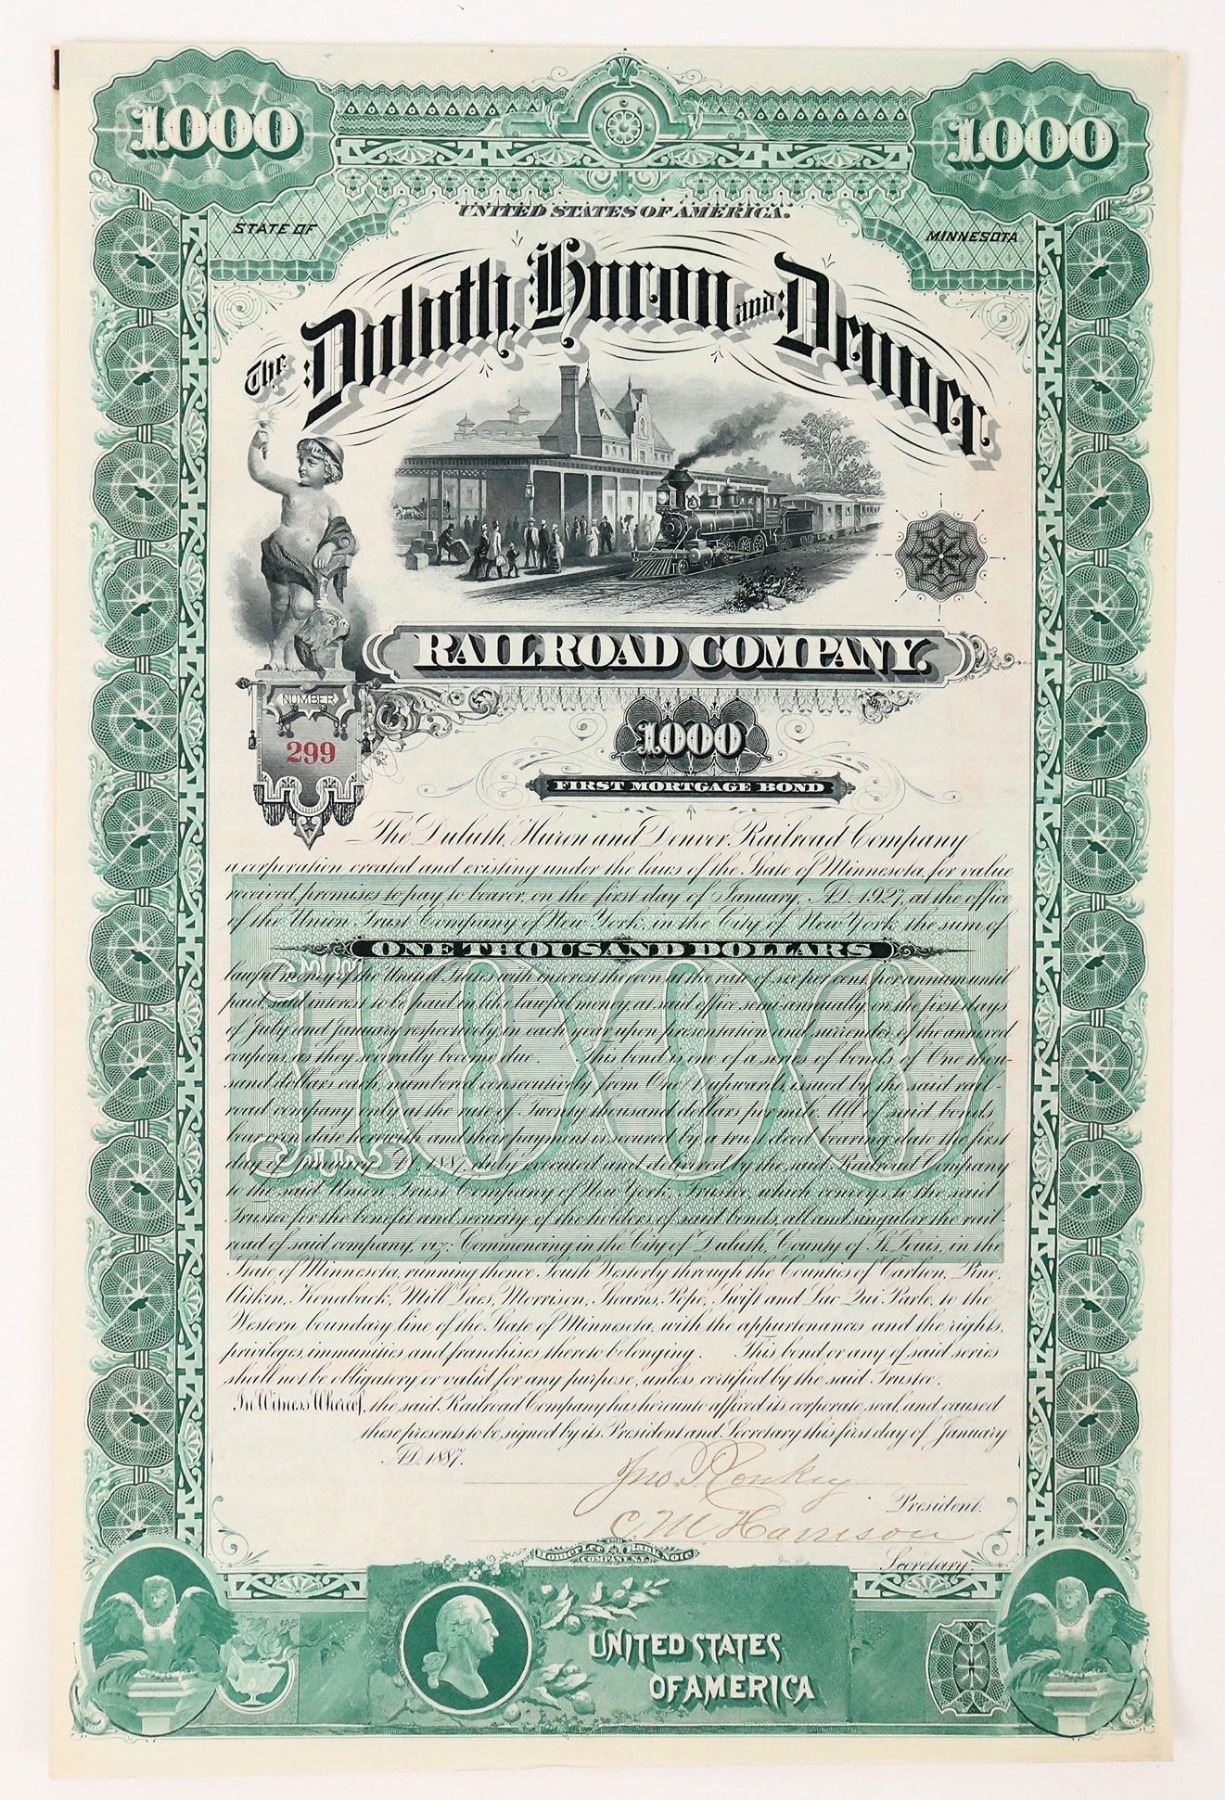 1000
1000
UNITED STATES OF AMERICA.
STATE OF
MINNESOTA
The Duluth, Huron and Denver
RAILROAD COMPANY.
NUMBER
299
1000
FIRST MORTGAGE BOND
The Duluth, Huron and Denver Railroad Company
a corporation created and existing under the laws of the State of Minnesota, for value
received, promises to pay to bearer, on the first day of January, A.D. 1927, at the office
of the Union Trust Company of New York, in the City of New York, the sum of
ONE THOUSAND DOLLARS
lawful money of the United States with interest thereon at the rate of six per cent. per annum until
paid, said interest to be paid in like lawful money at said office semi-annually, on the first days
of July and January respectively, in each year upon presentation and surrender of the annexed
coupons, as they severally become due. This bond is one of a series of bonds, of One thou-
sand dollars each numbered consecutively from One (1) upwards, issued by the said rail-
road company only at the rate of Twenty thousand dollars per mile. All of said bonds
bear even date herewith and their payment is secured by a trust deed bearing date the first
day of January A.D. 1887, duly executed and delivered by the said Railroad Company
to the said Union Trust Company of New York, Trustee, which conveys to the said
Trustee for the benefit and security of the holders of said bonds, all and singular the rail
road of said company, viz: Commencing in the City of Duluth, County of St. Louis, in the
State of Minnesota, running thence South Westerly through the Counties of Carlton, Pine,
Aitkin, Kenaback, Mill Lacs, Morrison, Stearns, Pope, Swift and Lac Qui Parle, to the
Western boundary line of the State of Minnesota, with the appurtenances and the rights,
privileges, immunities and franchises thereto belonging. This bond or any of said series
shall not be obligatory or valid for any purpose, unless certified by the said Trustee.
In Witness Whereof, the said Railroad Company has hereunto affixed its corporate seal, and caused
these presents to be signed by its President and Secretary this first day of January
A.D. 1887.
Jno. P. Conkey
President.
C. M. Harrison
Secretary.
Homer Lee Bank Note
COMPANY, N.Y.
UNITED STATES
OF AMERICA